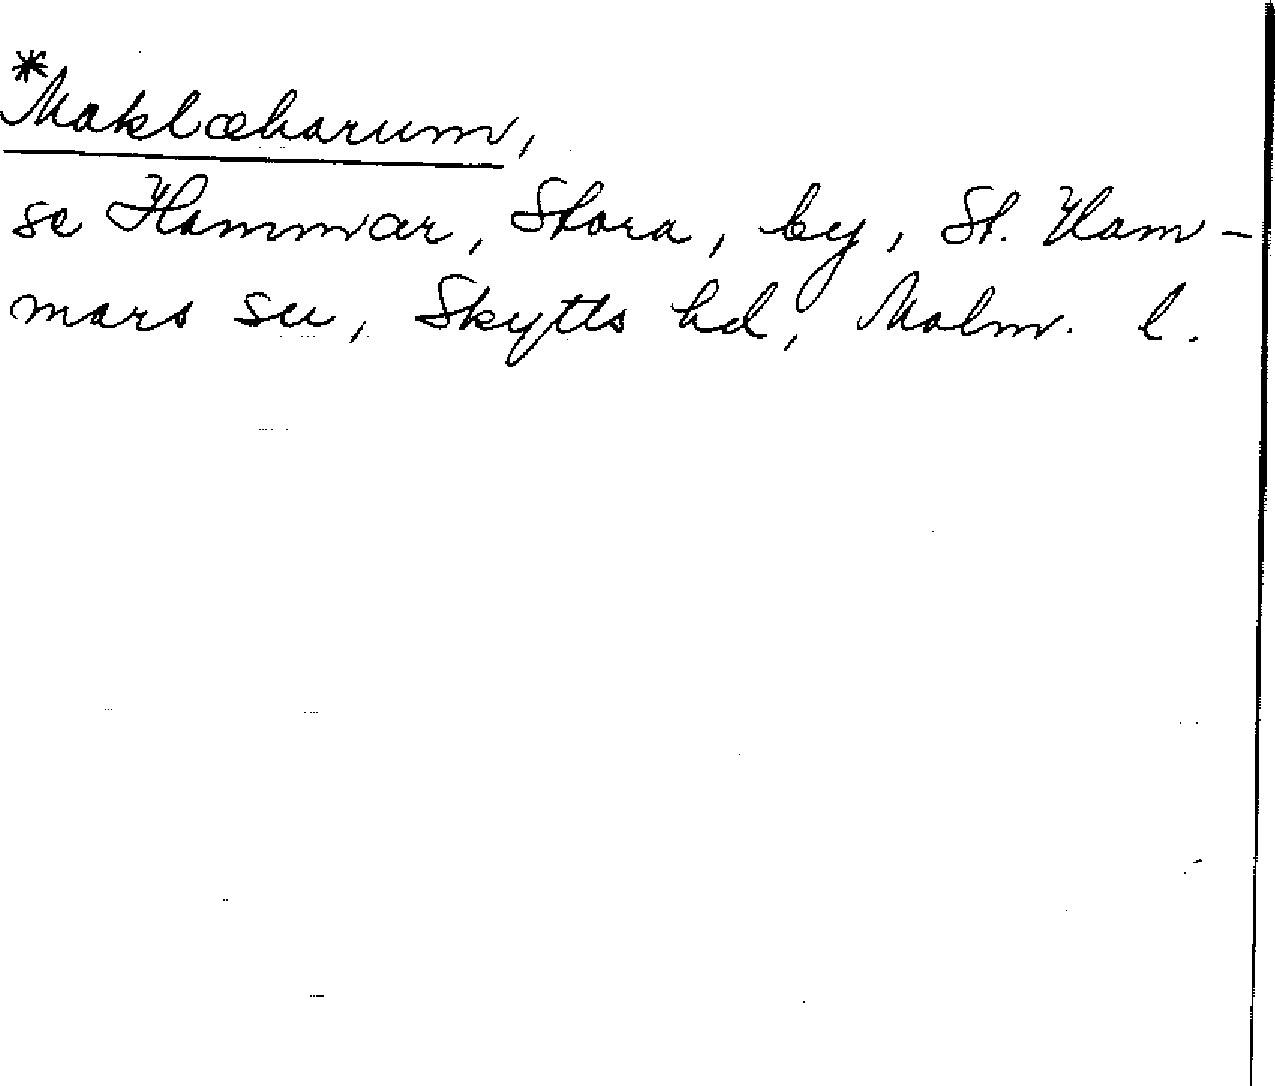 *Maklæharum,
se Hammar, Stora, by, St. Ham-
mars sn, Skytts hd, Malm. l.